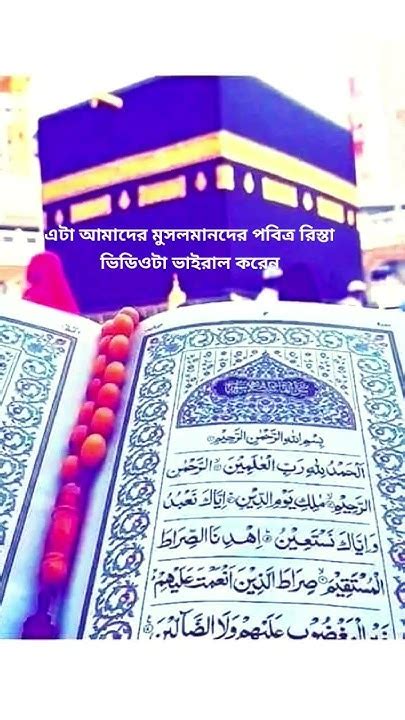 এটা আমাদের মুসলমানদের পবিত্র রিস্তা
ভিডিওটা ভাইরাল করেন
بِسْمِ اللهِ الرَّحْمٰنِ الرَّحِيْمِ
اَلْحَمْدُ لِلّٰهِ رَبِّ الْعٰلَمِيْنَ الرَّحْمٰنِ
الرَّحِيْمِ مٰلِكِ يَوْمِ الدِّيْنِ اِيَّاكَ نَعْبُدُ
وَاِيَّاكَ نَسْتَعِيْنُ اِهْدِنَا الصِّرَاطَ
الْمُسْتَقِيْمَ صِرَاطَ الَّذِيْنَ اَنْعَمْتَ عَلَيْهِمْ
غَيْرِ الْمَغْضُوْبِ عَلَيْهِمْ وَلَا الضَّآلِّيْنَ